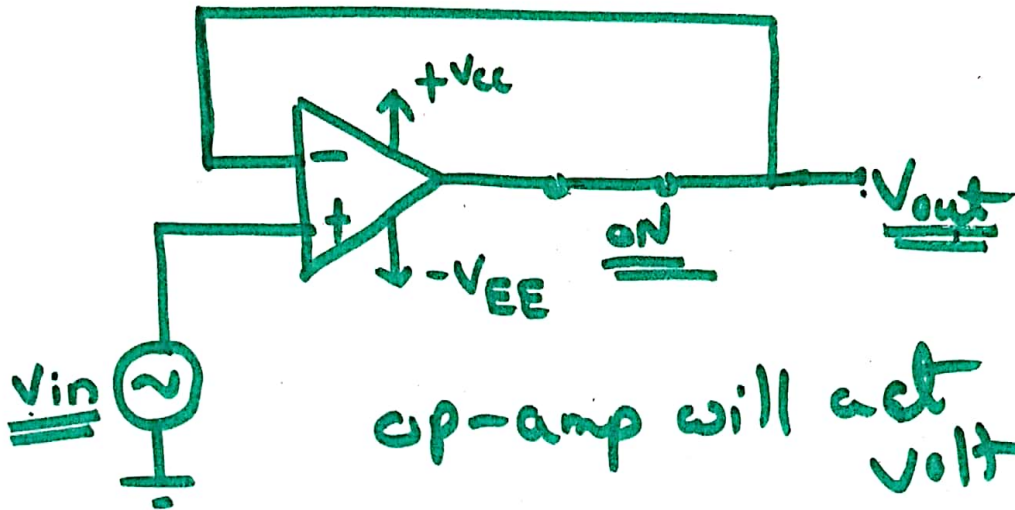 +Vcc
-
+
ON
Vout
-VEE
Vin
op-amp will act
volt